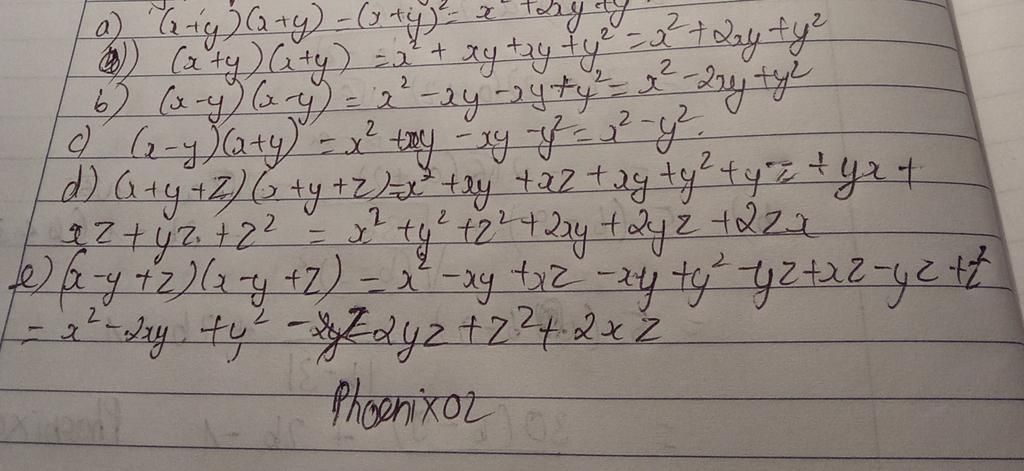 a) (x+y)(x+y) -(x+y)²= x²+2xy+y
a)) (x+y)(x+y) =x²+xy+xy+y²=x²+2xy+y²
b) (x-y)(x-y)=x²-xy-xy+y²=x²-2xy+y²
c) (x-y)(x+y) =x²+xy-xy-y²=x²-y².
d) (x+y+z)(x+y+z)=x²+xy+xz+xy+y²+yz+yx+
xz+yz.+z² = x²+y²+z²+2xy+2yz+2zx
e) (x-y+z)(x-y+z)=x²-xy+xz-xy+y²-yz+xz-yz+z²
=x²-2xy+y²-2yz+z²+2xz
Phoenix02